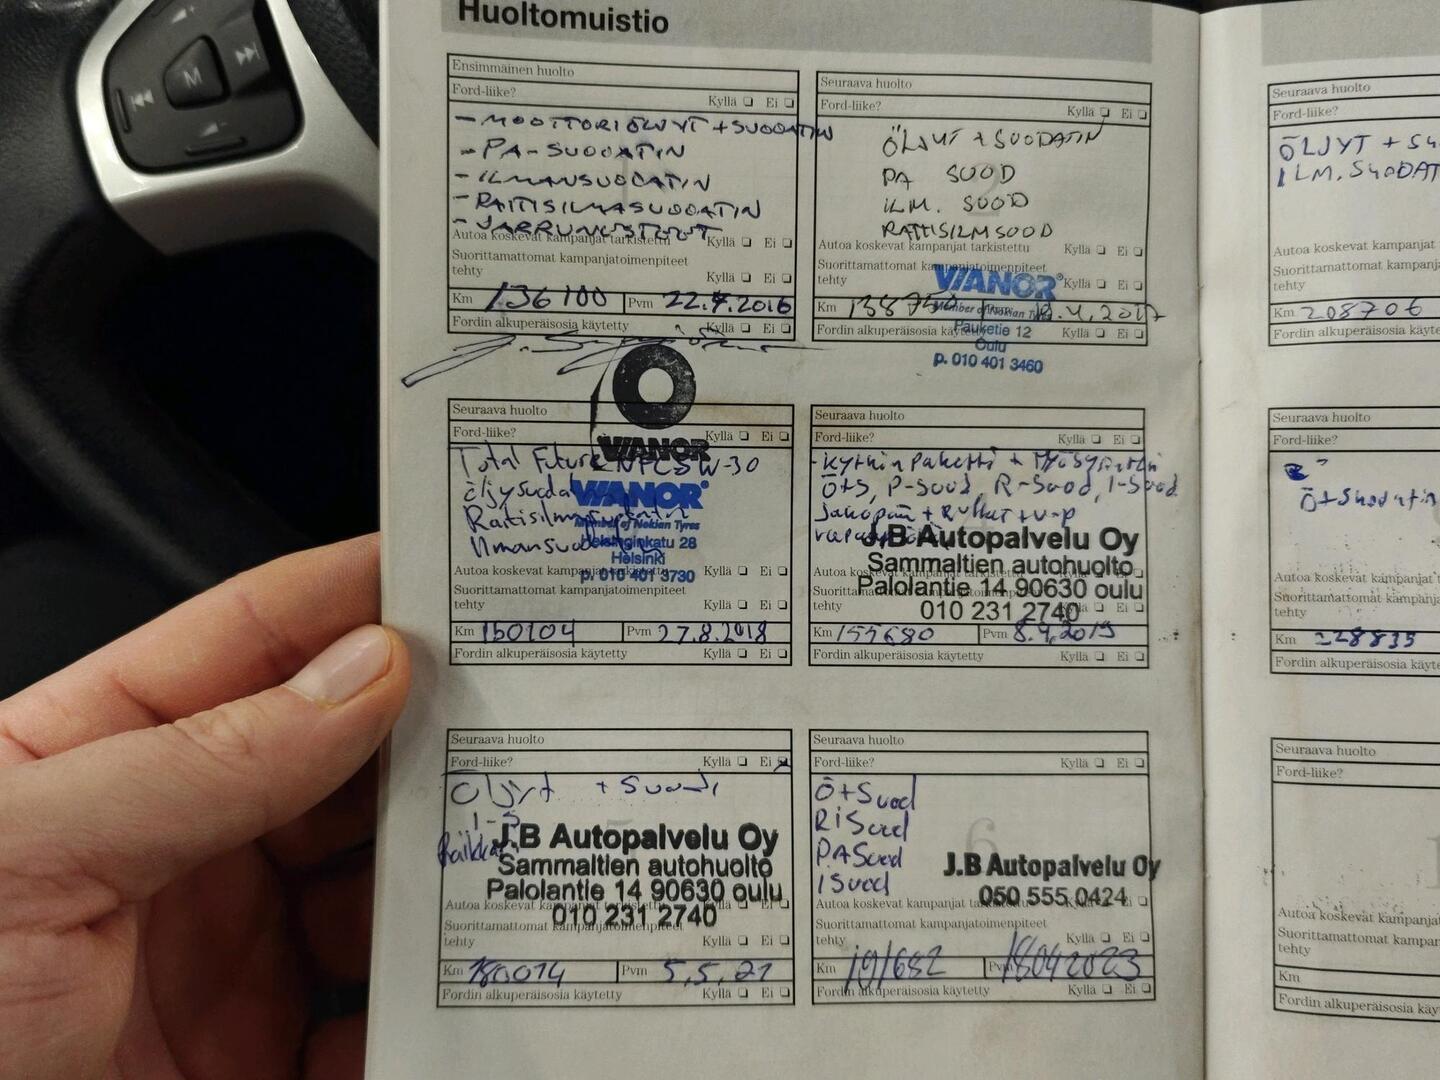 M
Huoltomuistio
Ensimmäinen huolto
Ford-liike? Kyllä Ei
- MOOTTORIÖLJYT + SUODATIN
- PA-SUODATIN
- ILMANSUODATIN
- RAITISILMASUODATIN
- JARRUNESTEET
Autoa koskevat kampanjat tarkistettu Kyllä Ei
Suorittamattomat kampanjatoimenpiteet
tehty Kyllä Ei
Km 136100 Pvm 22.4.2016
Fordin alkuperäisosia käytetty Kyllä Ei
VIANOR
Seuraava huolto
Ford-liike? Kyllä Ei
ÖLJYT + SUODATIN
PA SUOD
ILM. SUOD
RAITISILMSUOD
2
Autoa koskevat kampanjat tarkistettu Kyllä Ei
Suorittamattomat kampanjatoimenpiteet
tehty Kyllä Ei
VIANOR®
Member of Nokian Tyres
Km Pvm
Pauketie 12
Oulu
p. 010 401 3460
Fordin alkuperäisosia käytetty
Seuraava huolto
Ford-liike? Kyllä Ei
Total Future NFC 5W-30
VIANOR®
Member of Nokian Tyres
Helsinginkatu 28
Helsinki
p. 010 401 3730
Autoa koskevat kampanjat tarkistettu Kyllä Ei
Suorittamattomat kampanjatoimenpiteet
tehty Kyllä Ei
Km 150104 Pvm 27.8.2018
Fordin alkuperäisosia käytetty Kyllä Ei
Seuraava huolto
Ford-liike? Kyllä Ei
- Kytkin paketti +
Ö+S, P-Suod, R-Suod, I-Suod
J.B Autopalvelu Oy
Sammaltien autohuolto
Palolantie 14 90630 oulu
010 231 2740
Autoa koskevat kampanjat tarkistettu
Suorittamattomat kampanjatoimenpiteet
tehty Kyllä Ei
Km 155680 Pvm 8.4.2019
Fordin alkuperäisosia käytetty Kyllä Ei
Seuraava huolto
Ford-liike? Kyllä Ei
Öljyt + Suod
J.B Autopalvelu Oy
Sammaltien autohuolto
Palolantie 14 90630 oulu
010 231 2740
Autoa koskevat kampanjat tarkistettu Kyllä Ei
Suorittamattomat kampanjatoimenpiteet
tehty Kyllä Ei
Km 180014 Pvm 5.5.21
Fordin alkuperäisosia käytetty Kyllä Ei
Seuraava huolto
Ford-liike? Kyllä Ei
Ö+Suod
RiSuod
PASuod
ISuod
6
J.B Autopalvelu Oy
050 555 0424
Autoa koskevat kampanjat tarkistettu Kyllä Ei
Suorittamattomat kampanjatoimenpiteet
tehty Kyllä Ei
Km 191682 Pvm 18042023
Fordin alkuperäisosia käytetty Kyllä Ei
Seuraava huolto
Ford-liike?
ÖLJYT +
ILM. SUODAT
Autoa koskevat kampanjat
Suorittamattomat kampanja
tehty
Km 208706
Fordin alkuperäisosia käytetty
Seuraava huolto
Ford-liike?
Ö+Suodatin
Autoa koskevat kampanjat
Suorittamattomat kampanja
tehty
Km 228835
Fordin alkuperäisosia käytetty
Seuraava huolto
Ford-liike?
Autoa koskevat kampanjat
Suorittamattomat kampan
tehty
Km
Fordin alkuperäisosia käy